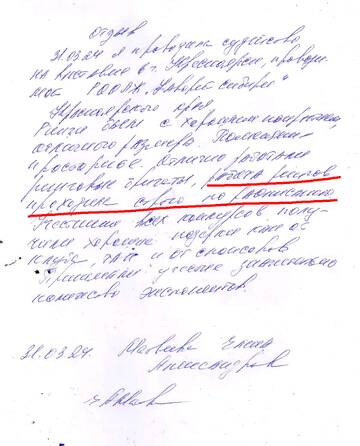 Отзыв
31.03.24 я проводила судейство
на выставке в г. Красноярск, проводи-
мой РООЛЖ "Фавориты Сибири"
Красноярского края
Ринги были с хорошим покрытием,
большого размера. Помещение
просторное. Отлично работали
ринговые бригады, работа рингов
проходила строго по расписанию
Участники всех конкурсов полу-
чили хорошие подарки как от
клуба, так и от спонсоров
Приятели
количество экспонентов.
31.03.24. Елена
Александров